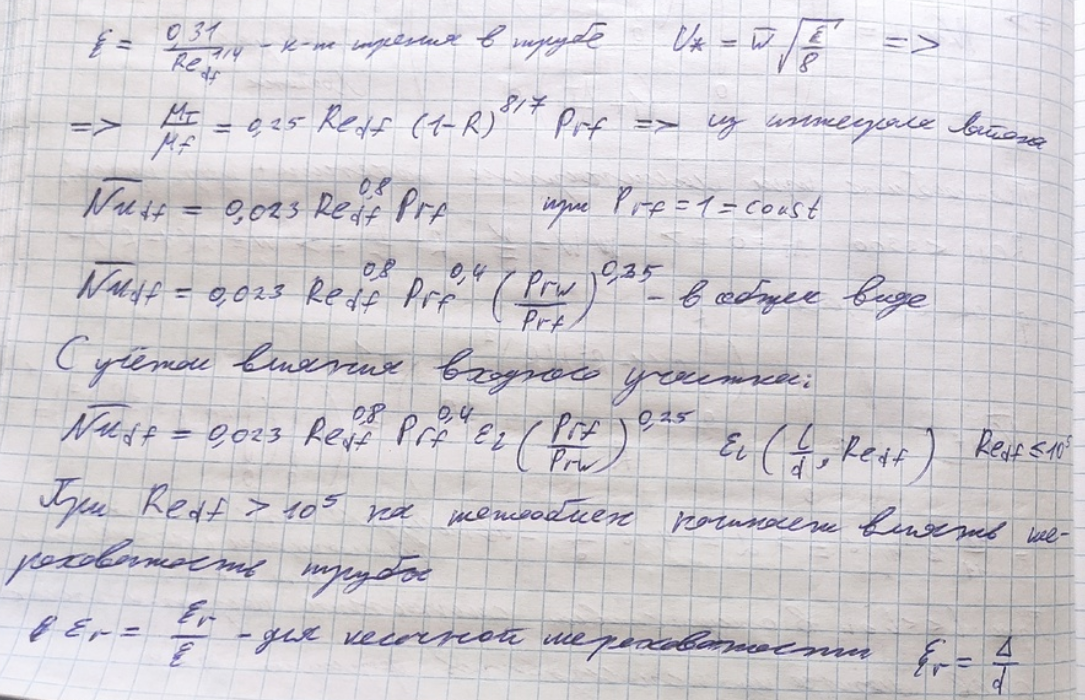 ξ = 0,31/Re_df^1/4 - к-т трения в трубе U* = w̅ √(ξ/8) =>
=> μ_T/μ_f = 0,25 Re_df (1-R)^8/7 Pr_f => из интеграла Лайона
N̅u̅_df = 0,023 Re_df^0,8 Pr_f при Pr_f = 1 = const
N̅u̅_df = 0,023 Re_df^0,8 Pr_f^0,4 (Pr_w/Pr_f)^0,25 - в общем виде
С учётом влияния входного участка:
N̅u̅_df = 0,023 Re_df^0,8 Pr_f^0,4 ε_l (Pr_f/Pr_w)^0,25 ε_l (l/d, Re_df) Re_df ≤ 10^5
При Re_df > 10^5 на теплообмен начинает влиять ше-
роховатость трубы
ε_r = ξ_r/ξ - для песочной шероховатости ξ_r = Δ/d